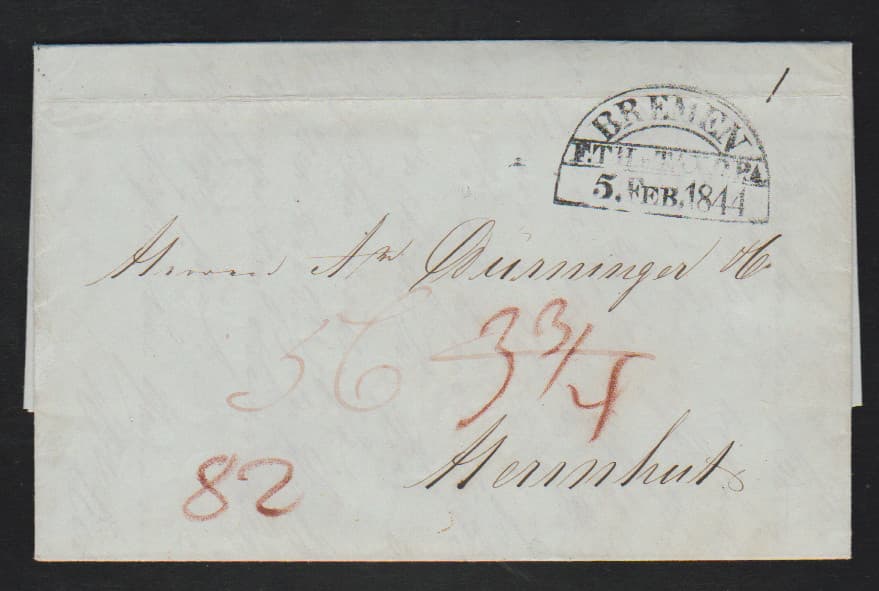 BREMEN
F.TH.&TAX.O.PA
5. FEB. 1844
Herren Abr Dürninger & C
56 3 3/4
Herrnhut
82